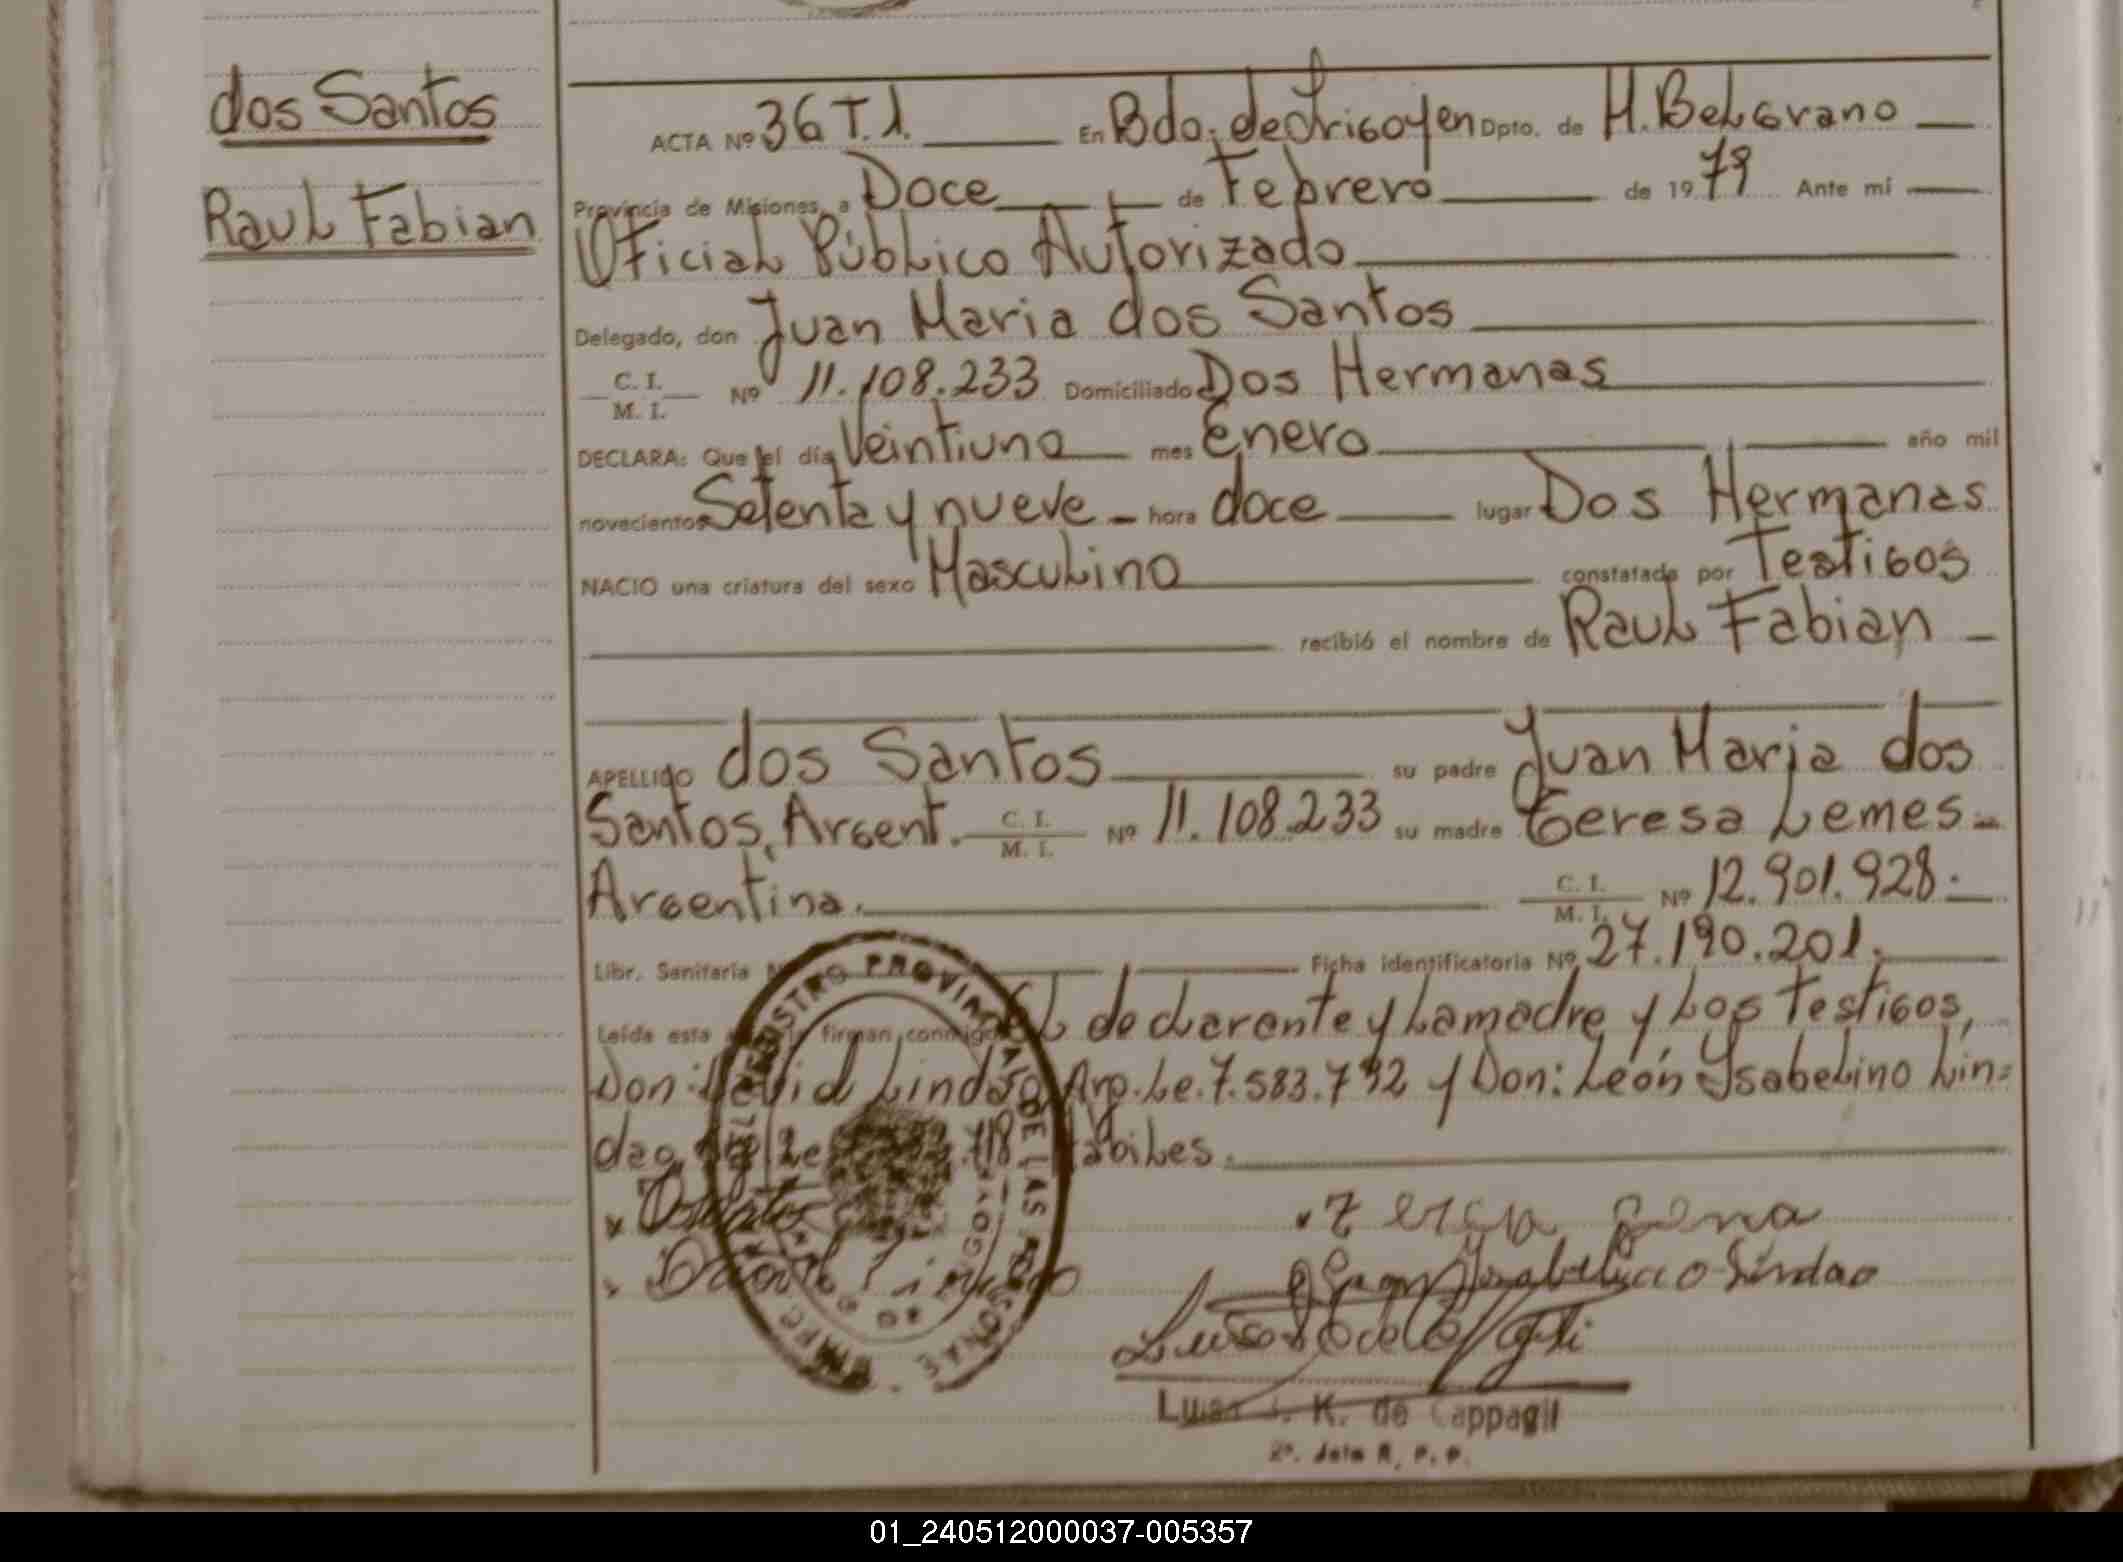 dos Santos
Raul Fabian
ACTA Nº 36 T.1. En Bdo. de Irigoyen Dpto. de M. Belgrano
Provincia de Misiones, a Doce de Febrero de 1979 Ante mi
Oficial Público Autorizado
Delegado, don Juan Maria dos Santos
C. I. M. I. Nº 11.108.233 Domiciliado Dos Hermanas
DECLARA: Que el día Veintiuno mes Enero año mil
novecientos Setenta y nueve hora doce lugar Dos Hermanas
NACIO una criatura del sexo Masculino constatada por Testigos
recibió el nombre de Raul Fabian
APELLIDO dos Santos su padre Juan Maria dos
Santos, Argent. C. I. M. I. Nº 11.108.233 su madre Teresa Lemes
Argentina. C. I. M. I. Nº 12.901.928.
Libr. Sanitaria Ficha identificatoria Nº 27.190.201.
Leída esta firman conmigo El declarante y La madre y Los Testigos,
Don: David Lindao, Arg. Le. 7.583.792 y Don: León Ysabelino Lin=
dao, Arg. Le 718 Habiles.
REGISTRO PROVINCIAL DE LAS PERSONAS
Luisa J. K. de Cappagli
2º. Jefe R. P. P.
01_240512000037-005357